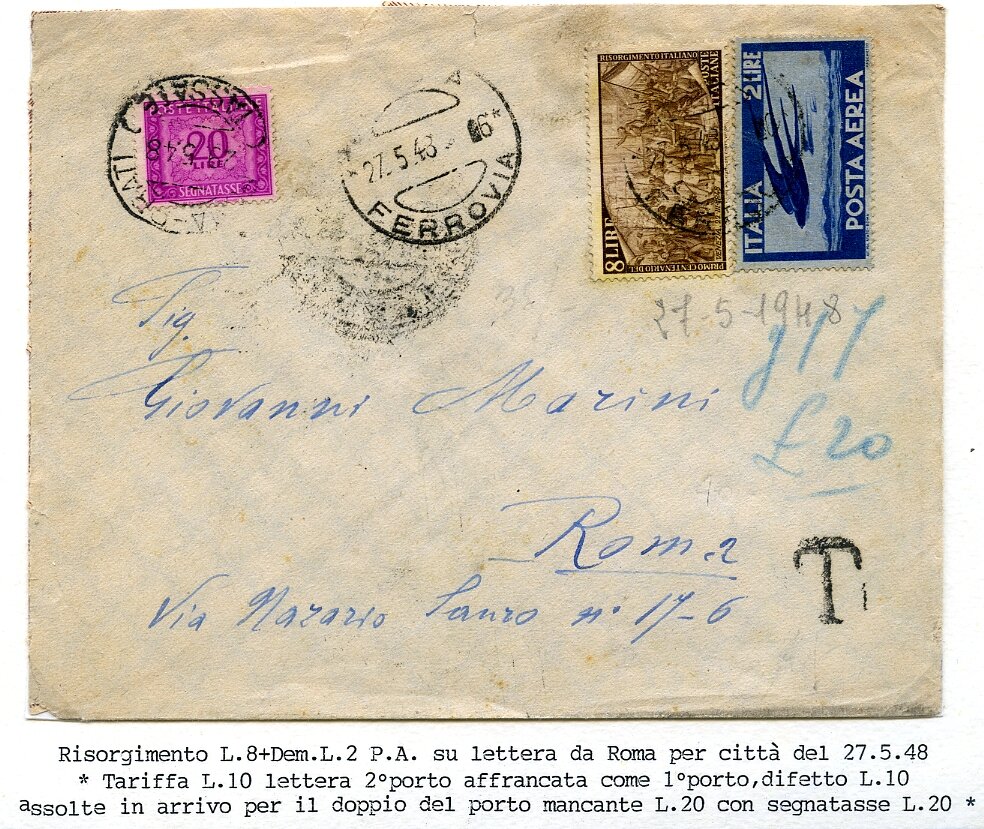 POSTE ITALIANE
20
LIRE
SEGNATASSE
27.5.48 6*
FERROVIA
RISORGIMENTO ITALIANO
POSTE ITALIANE
8 LIRE
PRIMO CENTENARIO DEL
ITALIA 2 LIRE
POSTA AEREA
27-5-1948
Sig.
Giovanni Marini
£ 20
Roma
T
Via Nazario Sauro n° 17-6
Risorgimento L.8+Dem.L.2 P.A. su lettera da Roma per città del 27.5.48
* Tariffa L.10 lettera 2°porto affrancata come 1°porto,difetto L.10
assolte in arrivo per il doppio del porto mancante L.20 con segnatasse L.20 *